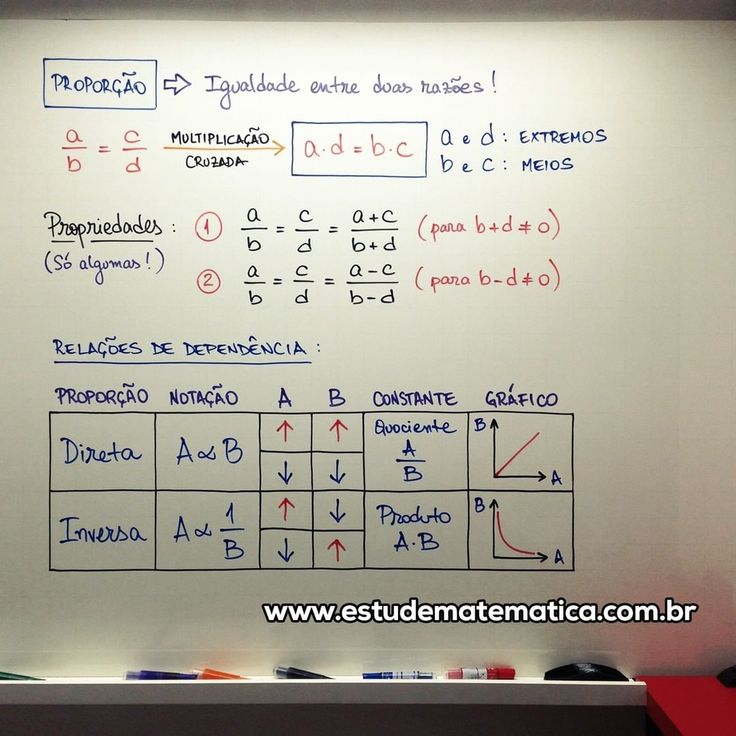 PROPORÇÃO ⇨ Igualdade entre duas razões!
a/b = c/d MULTIPLICAÇÃO CRUZADA → a·d = b·c
a e d: EXTREMOS
b e c: MEIOS
Propriedades: ① a/b = c/d = a+c/b+d (para b+d ≠ 0)
(Só algumas!)
② a/b = c/d = a-c/b-d (para b-d ≠ 0)
RELAÇÕES DE DEPENDÊNCIA:
PROPORÇÃO NOTAÇÃO A B CONSTANTE GRÁFICO
Direta A ∝ B ↑ ↑ Quociente A/B B A
↓ ↓
Inversa A ∝ 1/B ↑ ↓ Produto A·B B A
↓ ↑
www.estudematematica.com.br